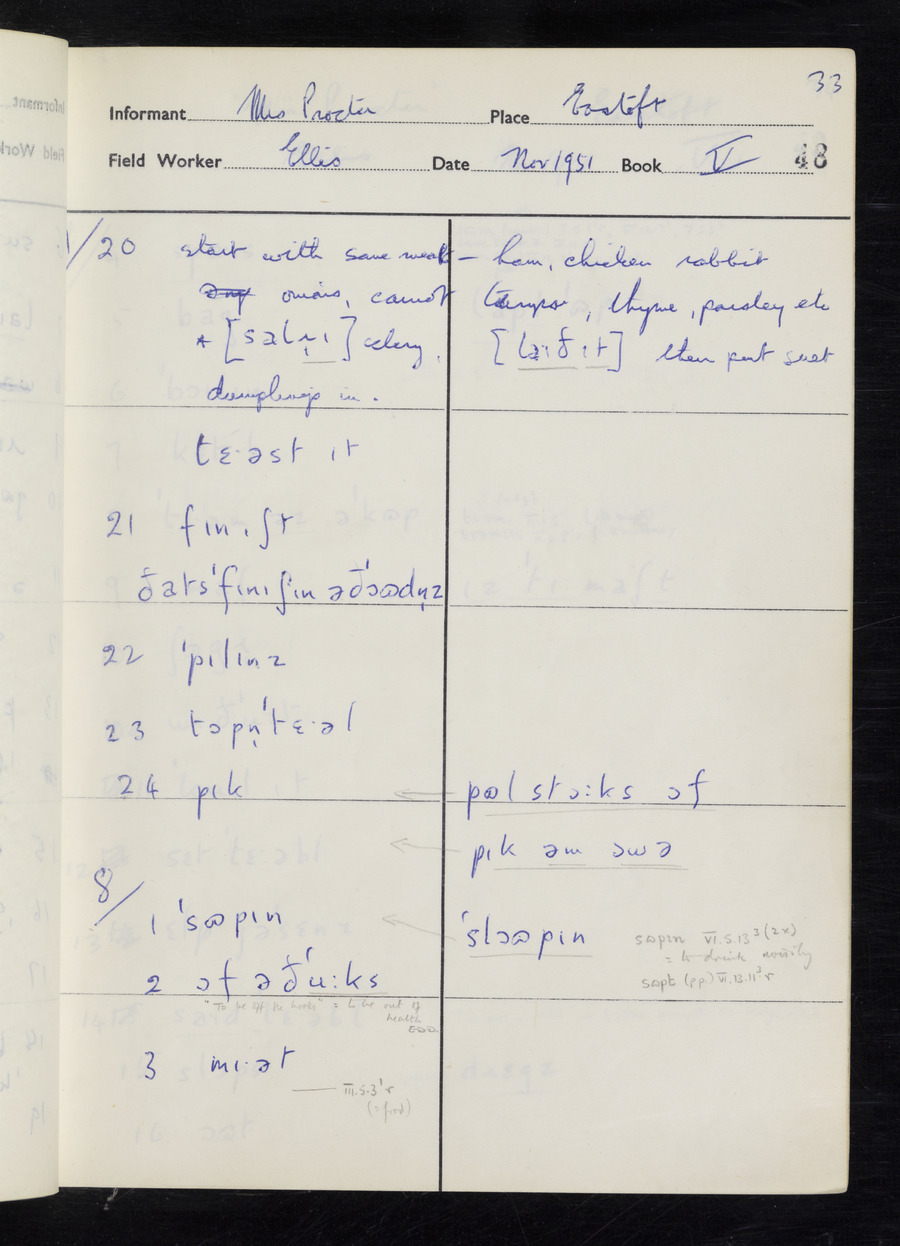 33
Informant Mrs Procter Place Eastoft
Field Worker Ellis Date Nov 1951 Book V 48
1/20 start with some meat – ham, chicken rabbit
any onions, carrot turnips, thyme, parsley etc
* [salrɪ] celery, [ ] then put suet
dumplings in.
tɛ·əst ɪt
21 fɪnɪʃt
ðats ˈfɪnɪʃɪn əðˈɔɷdn̩z
22 ˈpɪlɪnz
23 tɔpn̩ˈtɛ·əl
24 pɪk ← pɷl stɔ:ks ɔf
← pɪk əm əwə
8/
1 ˈsɷpɪn ← ˈslɔɷpɪn sɷpɪn VI.5.13³ (2x)
= to drink noisily
2 ɔf əðˈu:ks sɷpt (pp.) VI.13.11³ r
"To be off the hooks" = to be out of
health
EDD.
3 mɪ·ət
— III.5.3¹ r
(= food)